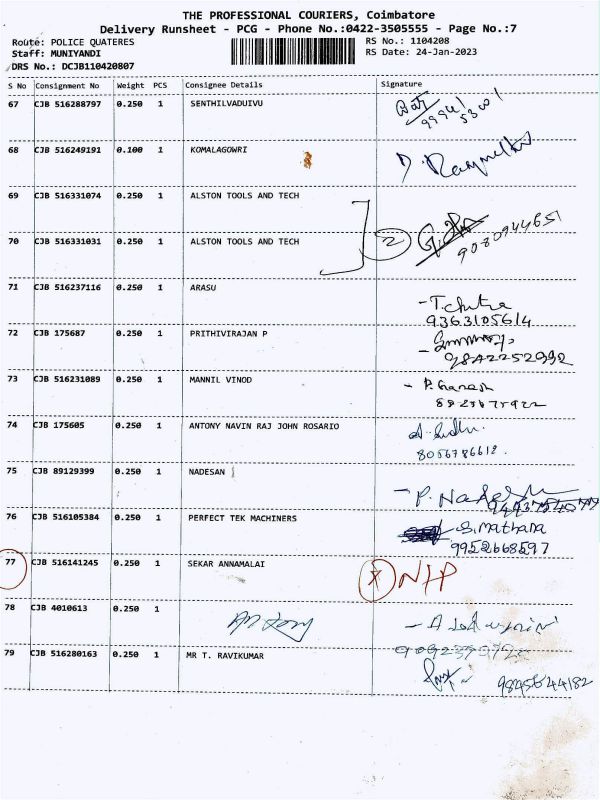 THE PROFESSIONAL COURIERS, Coimbatore
Delivery Runsheet - PCG - Phone No.:0422-3505555 - Page No.:7
Route: POLICE QUATERES
Staff: MUNIYANDI
DRS No.: DCJB110420807
RS No.: 1104208
RS Date: 24-Jan-2023
S No Consignment No Weight PCS Consignee Details Signature
67 CJB 516288797 0.250 1 SENTHILVADUIVU
68 CJB 516249191 0.100 1 KOMALAGOWRI
69 CJB 516331074 0.250 1 ALSTON TOOLS AND TECH
70 CJB 516331031 0.250 1 ALSTON TOOLS AND TECH 2
9080944651
71 CJB 516237116 0.250 1 ARASU
- T. Chitra
9363105614
72 CJB 175687 0.250 1 PRITHIVIRAJAN P
9842252992
73 CJB 516231089 0.250 1 MANNIL VINOD
- P. Ganesh
74 CJB 175605 0.250 1 ANTONY NAVIN RAJ JOHN ROSARIO
8056786612.
75 CJB 89129399 0.250 1 NADESAN
- P. Nadesh
76 CJB 516105384 0.250 1 PERFECT TEK MACHINERS
S. Mathana
9952668597
77 CJB 516141245 0.250 1 SEKAR ANNAMALAI
78 CJB 4010613 0.250 1
79 CJB 516280163 0.250 1 MR T. RAVIKUMAR
9845644182